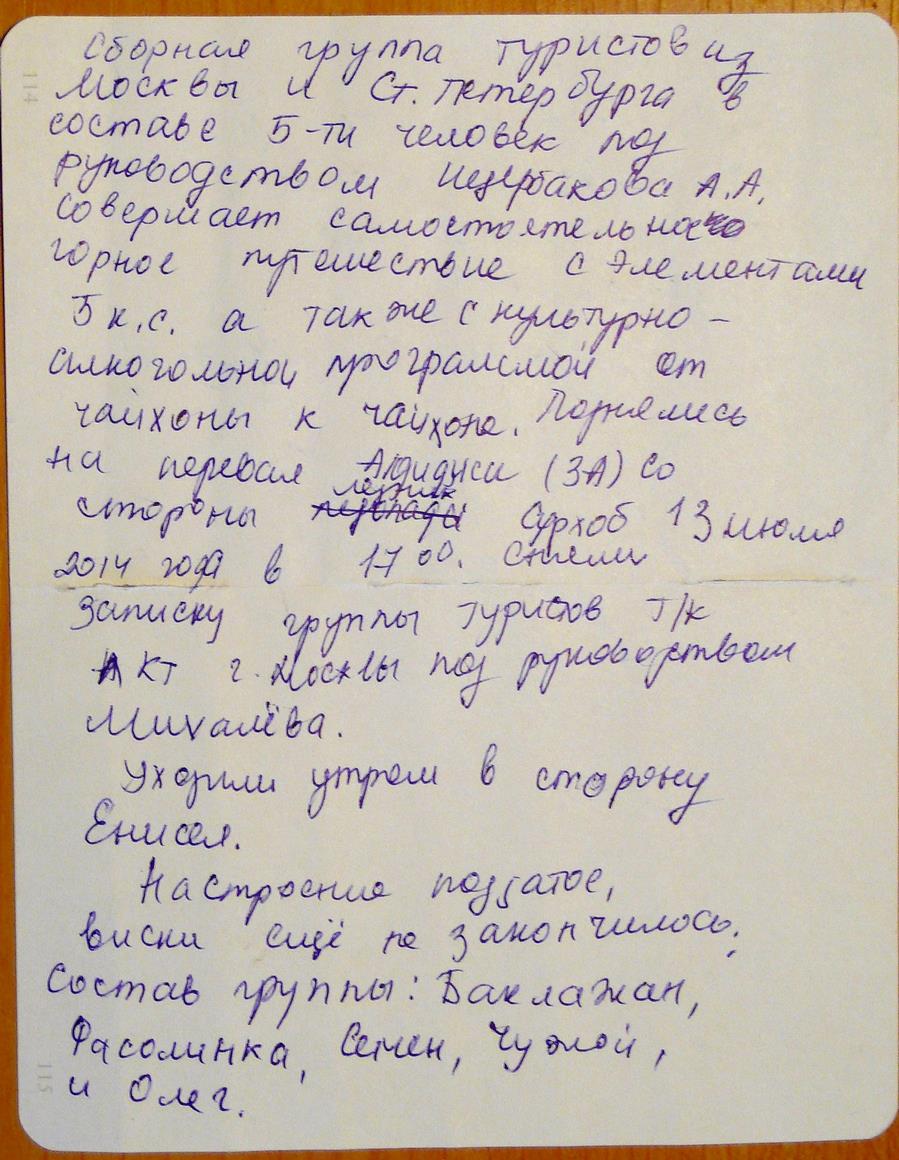 Сборная группа туристов из
Москвы и Ст. Петербурга в
составе 5-ти человек под
руководством Щербакова А.А.
совершает самостоятельное
горное путешествие с элементами
5 к.с. а также с культурно-
алкогольной программой от
чайхоны к чайхоне. Поднялись
на перевал (3А) со
стороны ледник Сурхоб 13 июля
2014 года в 17 00. Сняли
записку группы туристов т/к
АКТ г. Москвы под руководством
Михалёва.
Уходим утром в сторону
Енисея.
Настроение поддатое,
виски ещё не закончилось.
Состав группы: Баклажан,
Фасолинка, Семён, Чужой,
и Олег.
114
115